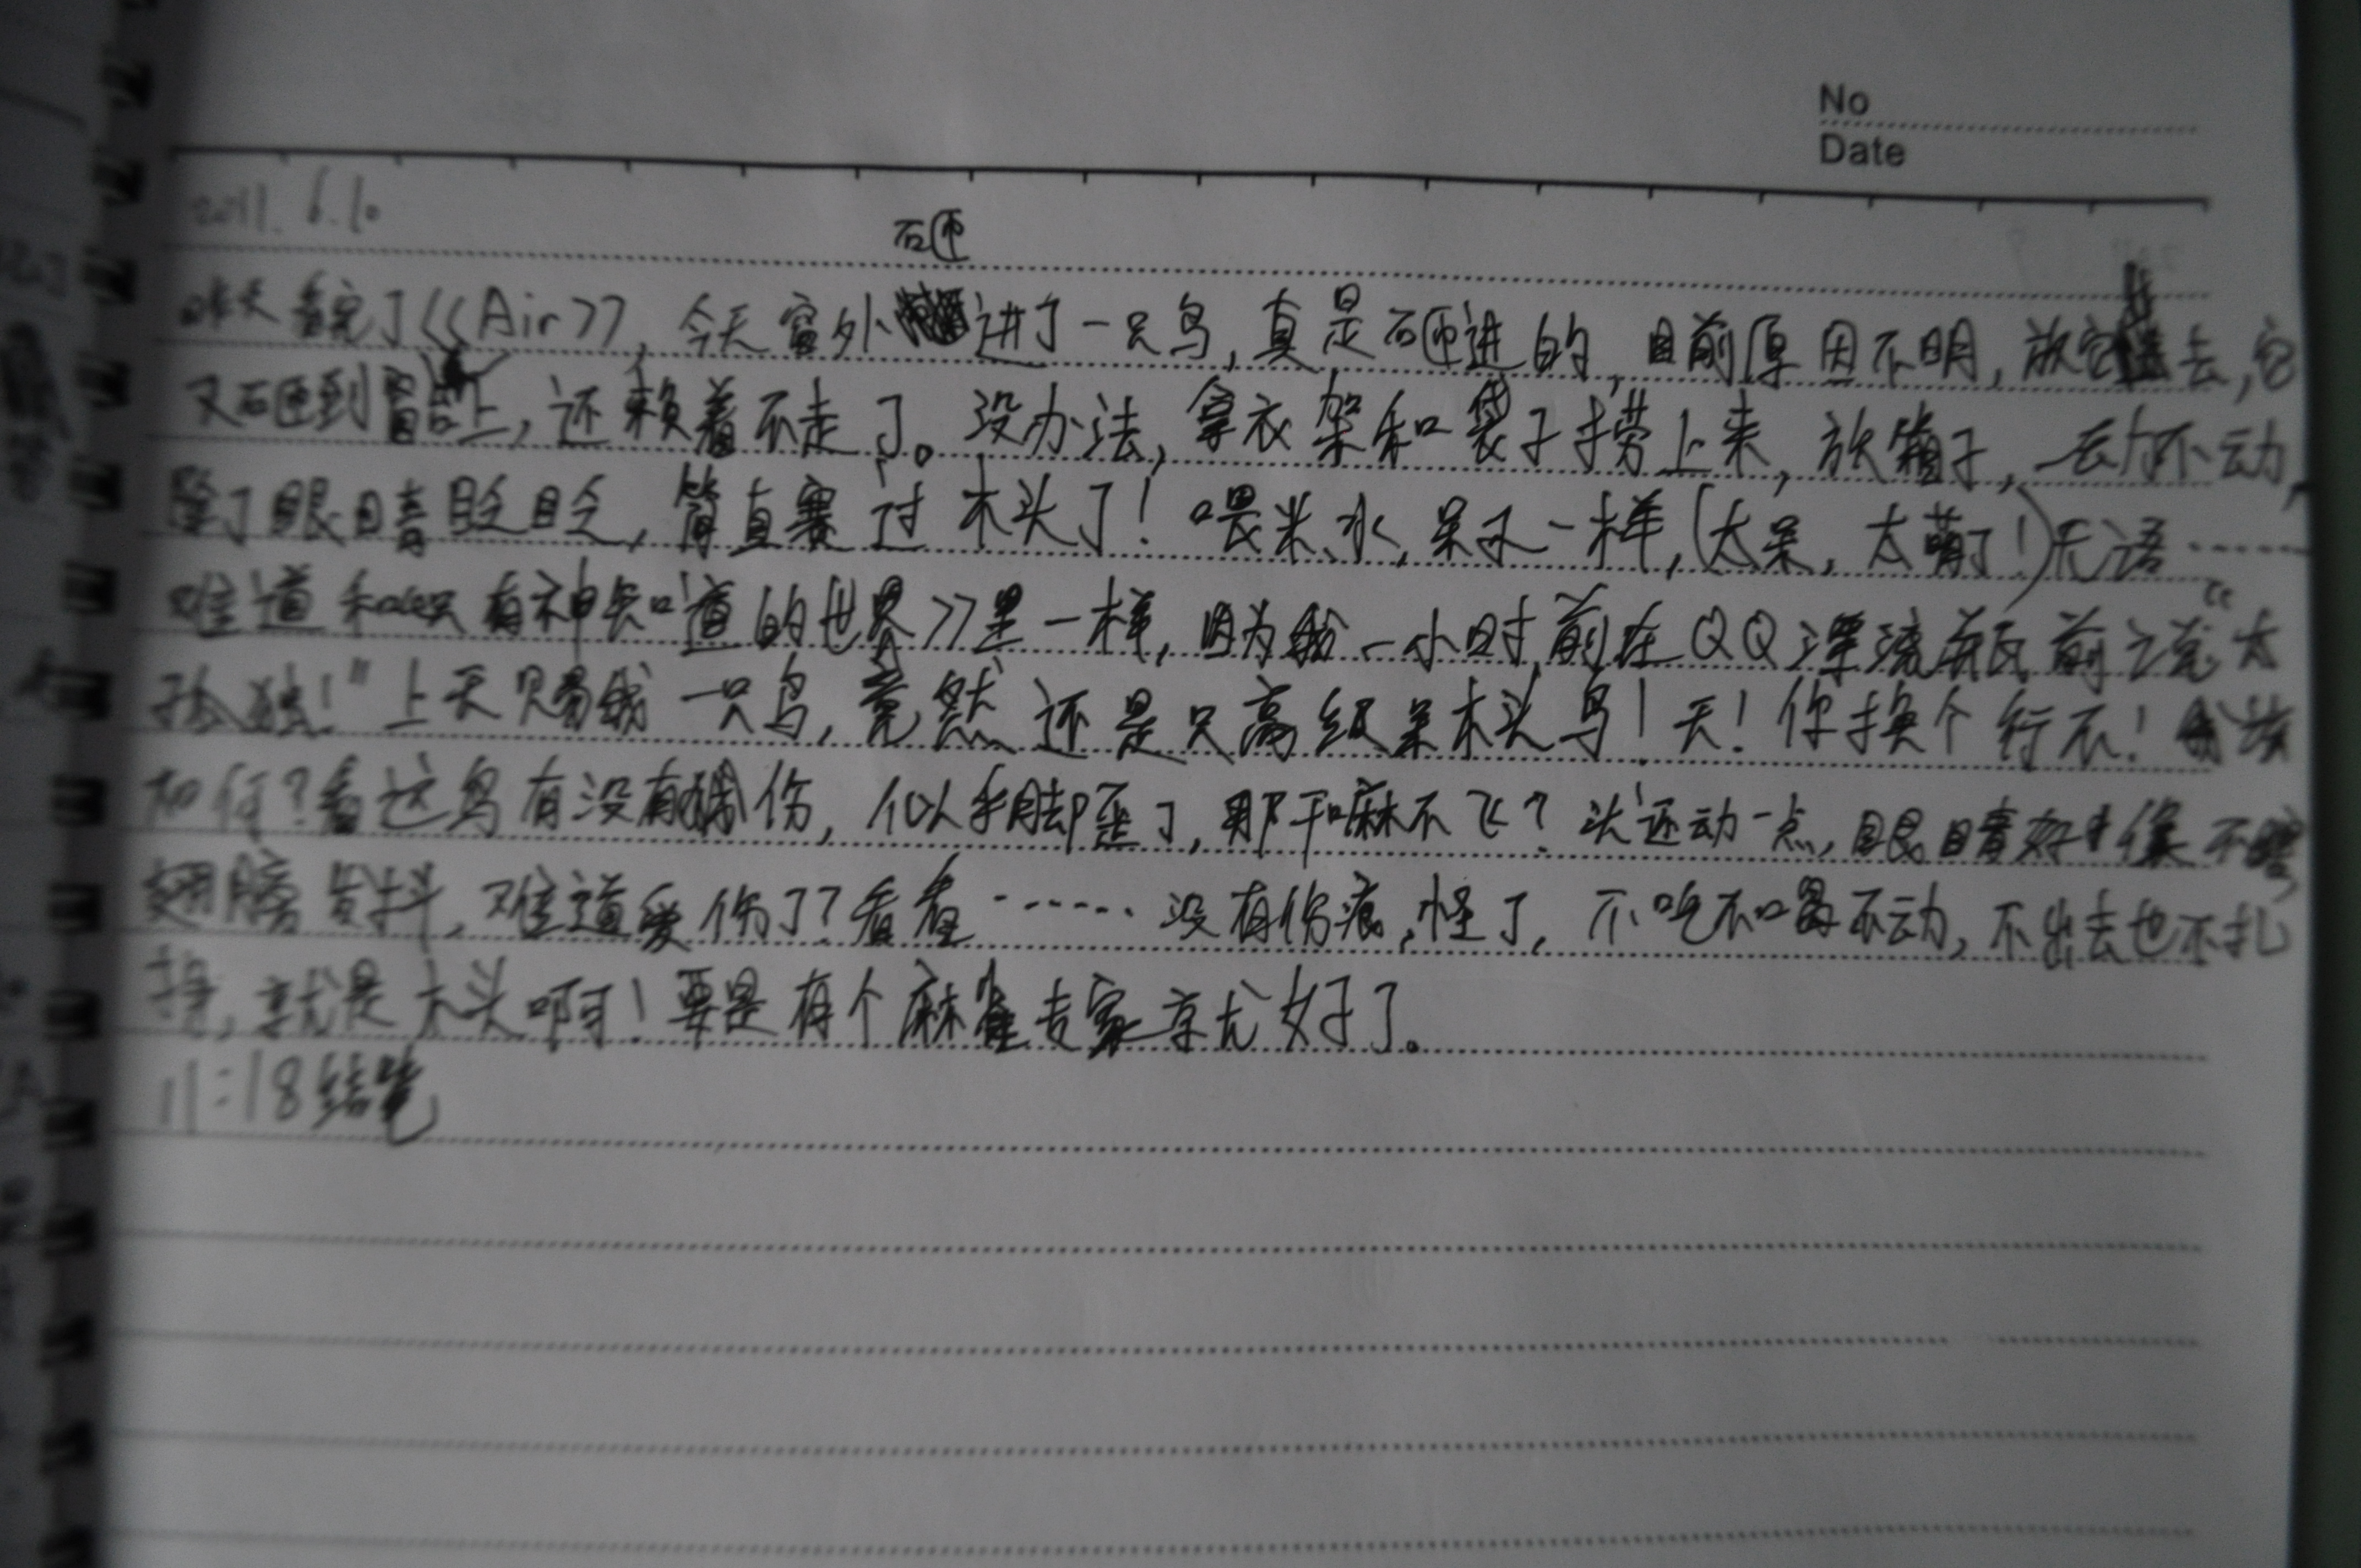 No
Date
2011.6.10
砸
昨天看完了《Air》，今天窗外进了一只鸟，真是砸进的，目前原因不明，放它出去，它
又砸到窗台上，还赖着不走了。没办法，拿衣架和袋子捞上来，放箱子，一动不动，
除了眼睛眨眨，简直赛过木头了！喂米、水，呆子一样，（太呆，太萌了！）无语……
难道和《只有神知道的世界》里一样，因为我一小时前在QQ漂流瓶前说“太
孤独！”上天赐我一只鸟，竟然还是只高级呆木头鸟！天！你换个行不！我该
如何？看这鸟有没有摔伤，似乎脚歪了，那干嘛不飞？头还动一点，眼睛好像不
翅膀发抖，难道受伤了？看看……没有伤痕，怪了，不吃不喝不动，不出去也不扎
挣，就是木头啊！要是有个麻雀专家就好了。
11:18结笔